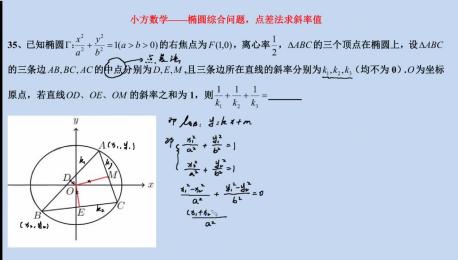 小方数学——椭圆综合问题，点差法求斜率值
35、已知椭圆Γ: x²/a² + y²/b² = 1(a > b > 0) 的右焦点为 F(1,0)，离心率 1/2，ΔABC的三个顶点在椭圆上，设ΔABC
点差法
的三条边 AB, BC, AC 的中点分别为 D, E, M ,且三条边所在直线的斜率分别为 k₁, k₂, k₃ (均不为 0) . O 为坐标
原点，若直线OD、OE、OM 的斜率之和为 1，则 1/k₁ + 1/k₂ + 1/k₃ = ______
y
A (x₁, y₁)
k₁
k₃
D
M
O
x
k₂
B
E
C
(x₂, y₂)
l_AB: y=kx+m
x₁²/a² + y₁²/b² = 1
x₂²/a² + y₂²/b² = 1
(x₁²-x₂²)/a² + (y₁²-y₂²)/b² = 0
(x₁+x₂
a²